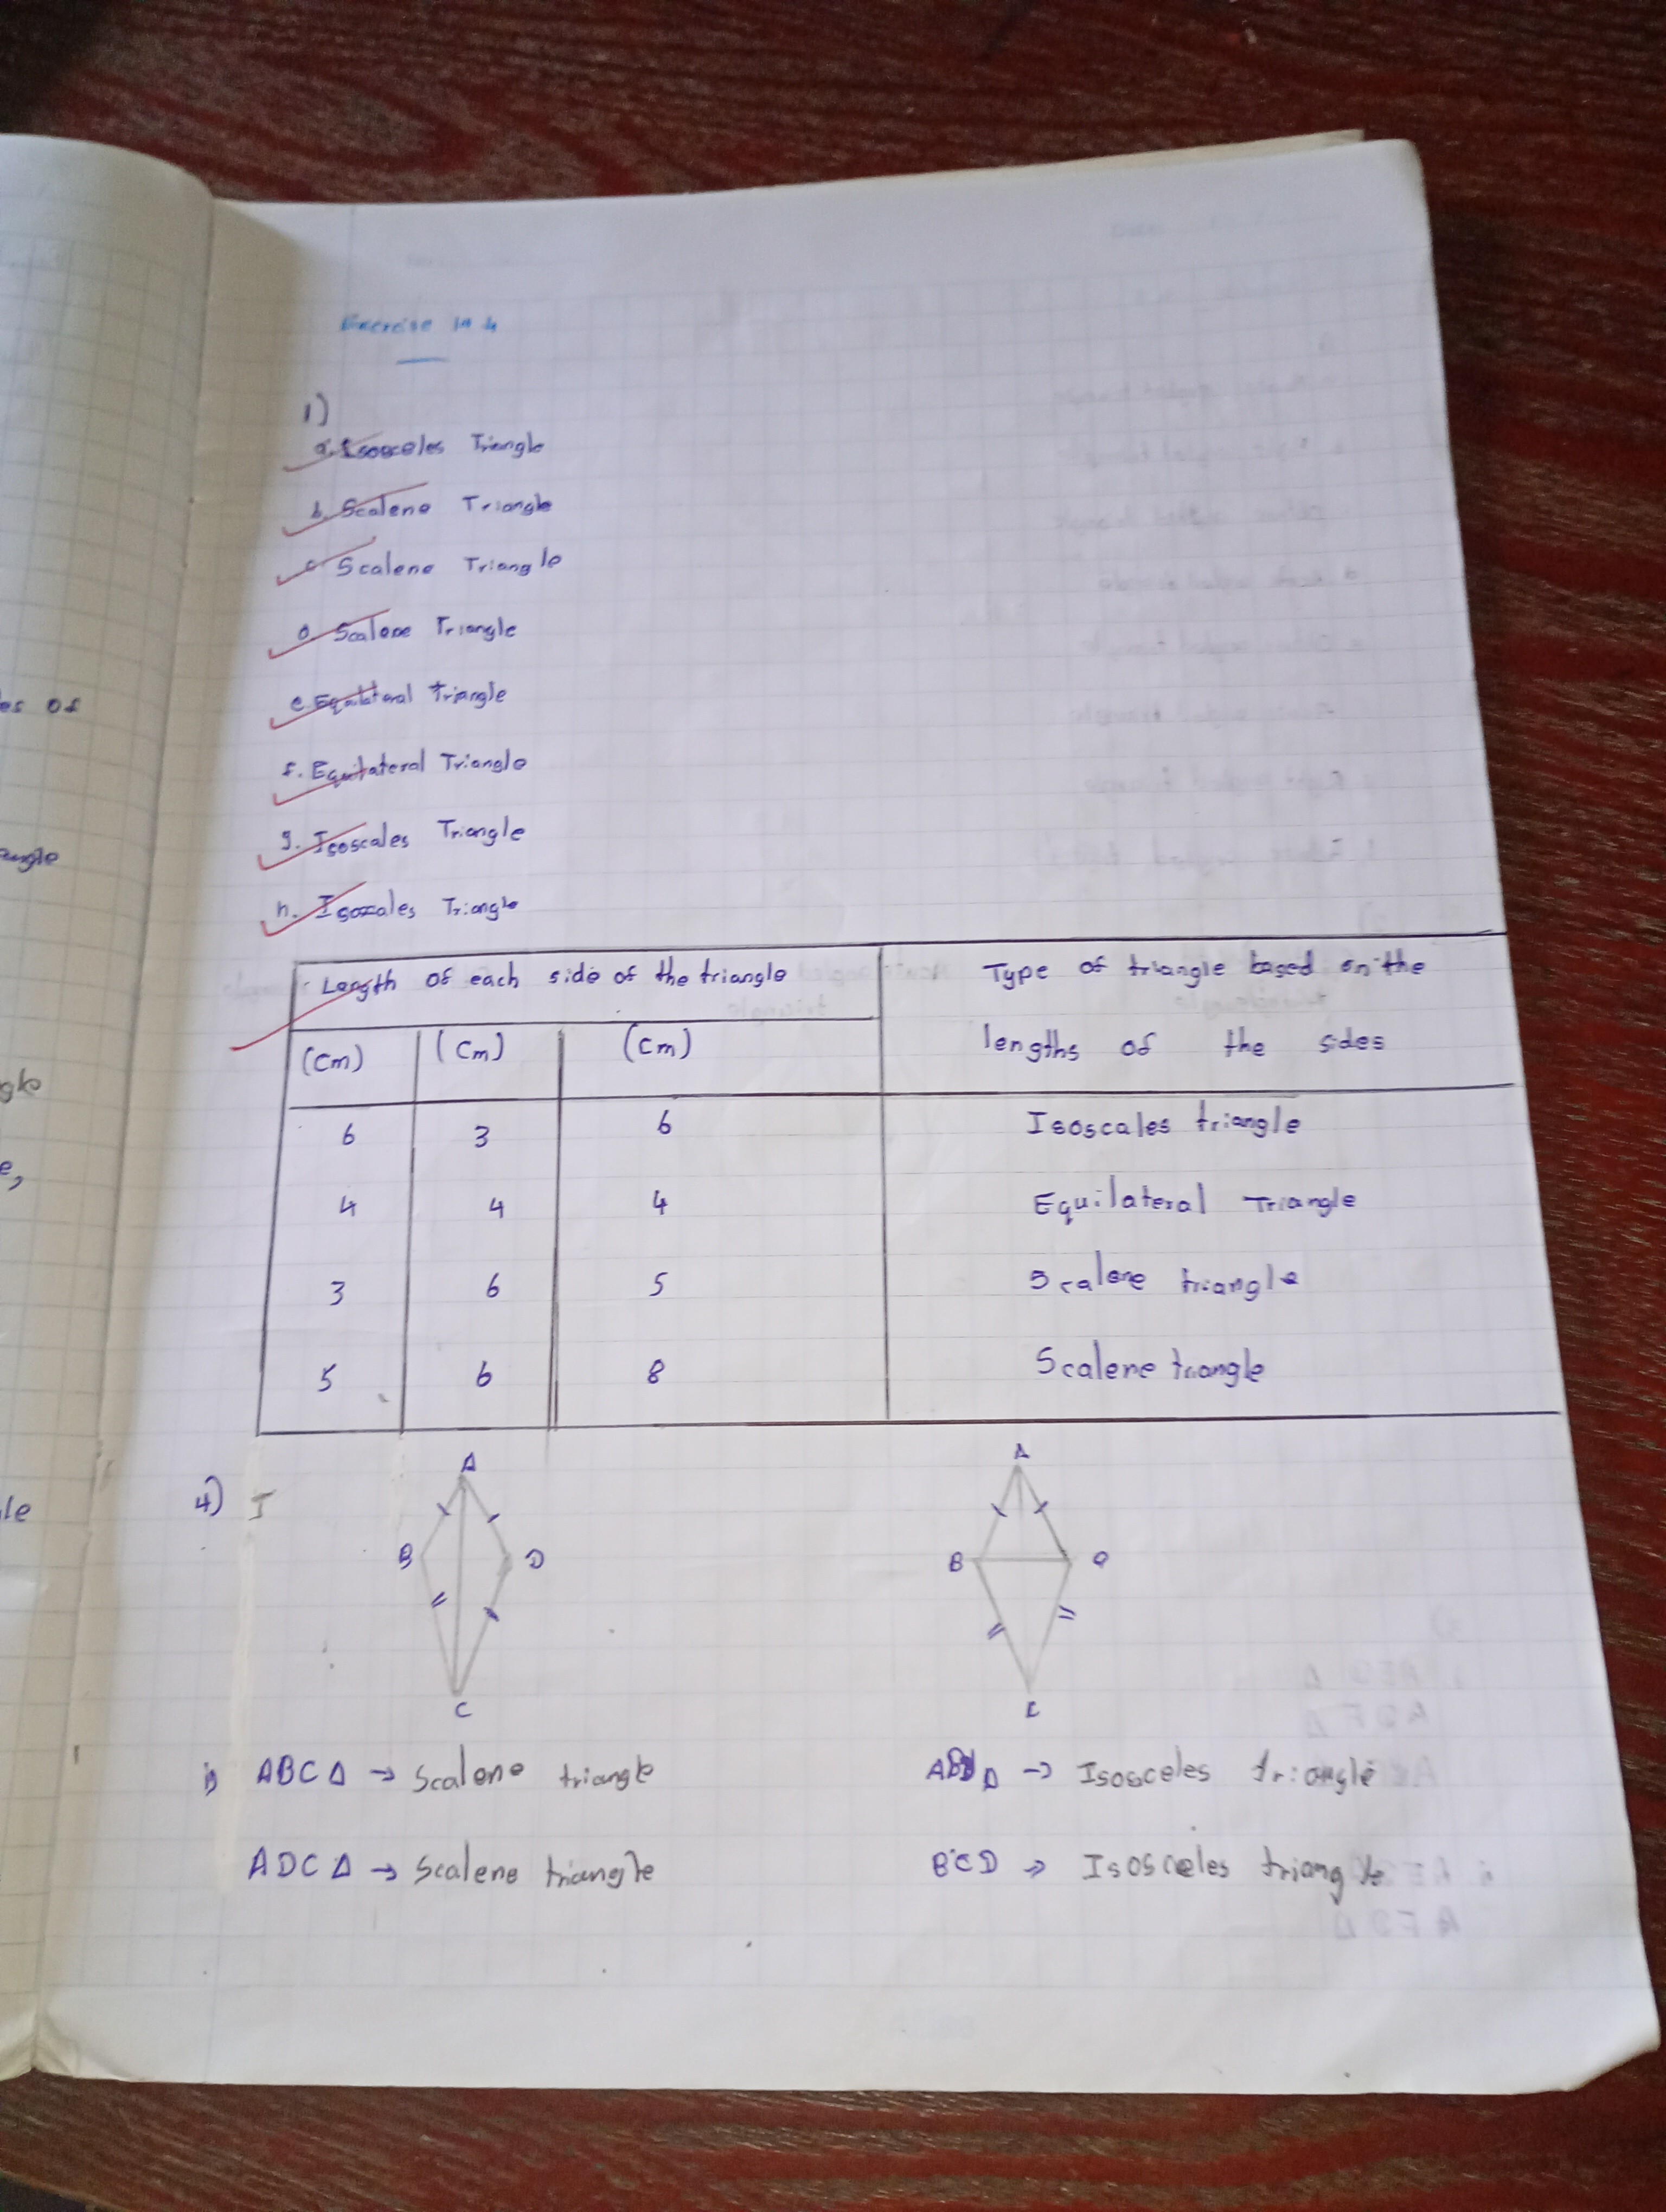 Exercise 19.4
1)
a. Isosceles Triangle
b. Scalene Triangle
c. Scalene Triangle
d. Scalene Triangle
e. Equilateral triangle
f. Equilateral Triangle
g. Isoscales Triangle
h. Isoscales Triangle
Length of each side of the triangle
Type of triangle based on the
lengths of the sides
(cm) (cm) (cm)
6 3 6 Isoscales triangle
4 4 4 Equilateral Triangle
3 6 5 Scalene triangle
5 6 8 Scalene triangle
4) I
A A
B D B D
C C
i) ABC Δ → Scalene triangle
Δ → Isosceles triangle
ADC Δ → Scalene triangle
BCD → Isosceles triangle
es of
angle
gle
e,
le